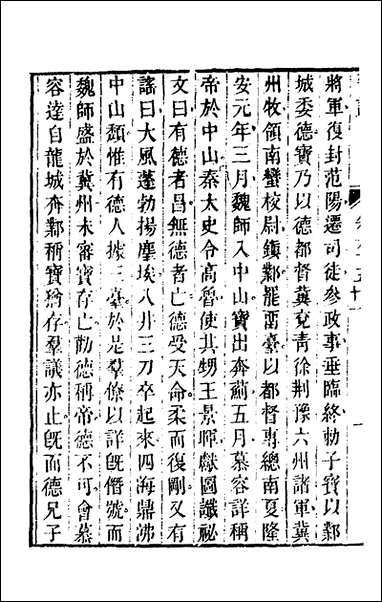 將軍復封范陽遷司徒參政事垂臨終勅子寶以鄴
城委德寶乃以德都督冀兗青徐荆豫六州諸軍冀
州牧領南蠻校尉鎮鄴罷畱臺以都督專總南夏隆
安元年三月魏師入中山寶出奔薊五月慕容詳稱
帝於中山秦太史令高魯使其甥王景暉獻圖讖祕
文曰有德者昌無德者亡德受天命柔而復剛又有
謠曰大風蓬勃揚塵埃八井三刀卒起來四海鼎沸
中山頽惟有德人據三臺於是羣僚以詳旣僭號而
魏師盛於冀州未審寶存亡勸德稱帝德不可會慕
容達自龍城奔鄴稱寶猶存羣議亦止旣而德兄子